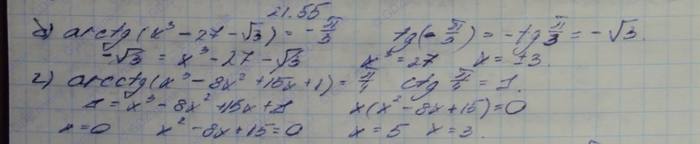 21.55
б) arctg(x³ - 27 - √3) = -π/3 tg(-π/3) = -tg π/3 = -√3.
-√3 = x³ - 27 - √3 x³ = 27 x = ±3.
г) arcctg(x³ - 8x² + 15x + 1) = π/4 ctg π/4 = 1.
1 = x³ - 8x² + 15x + 1 x(x² - 8x + 15) = 0
x = 0 x² - 8x + 15 = 0 x = 5 x = 3.